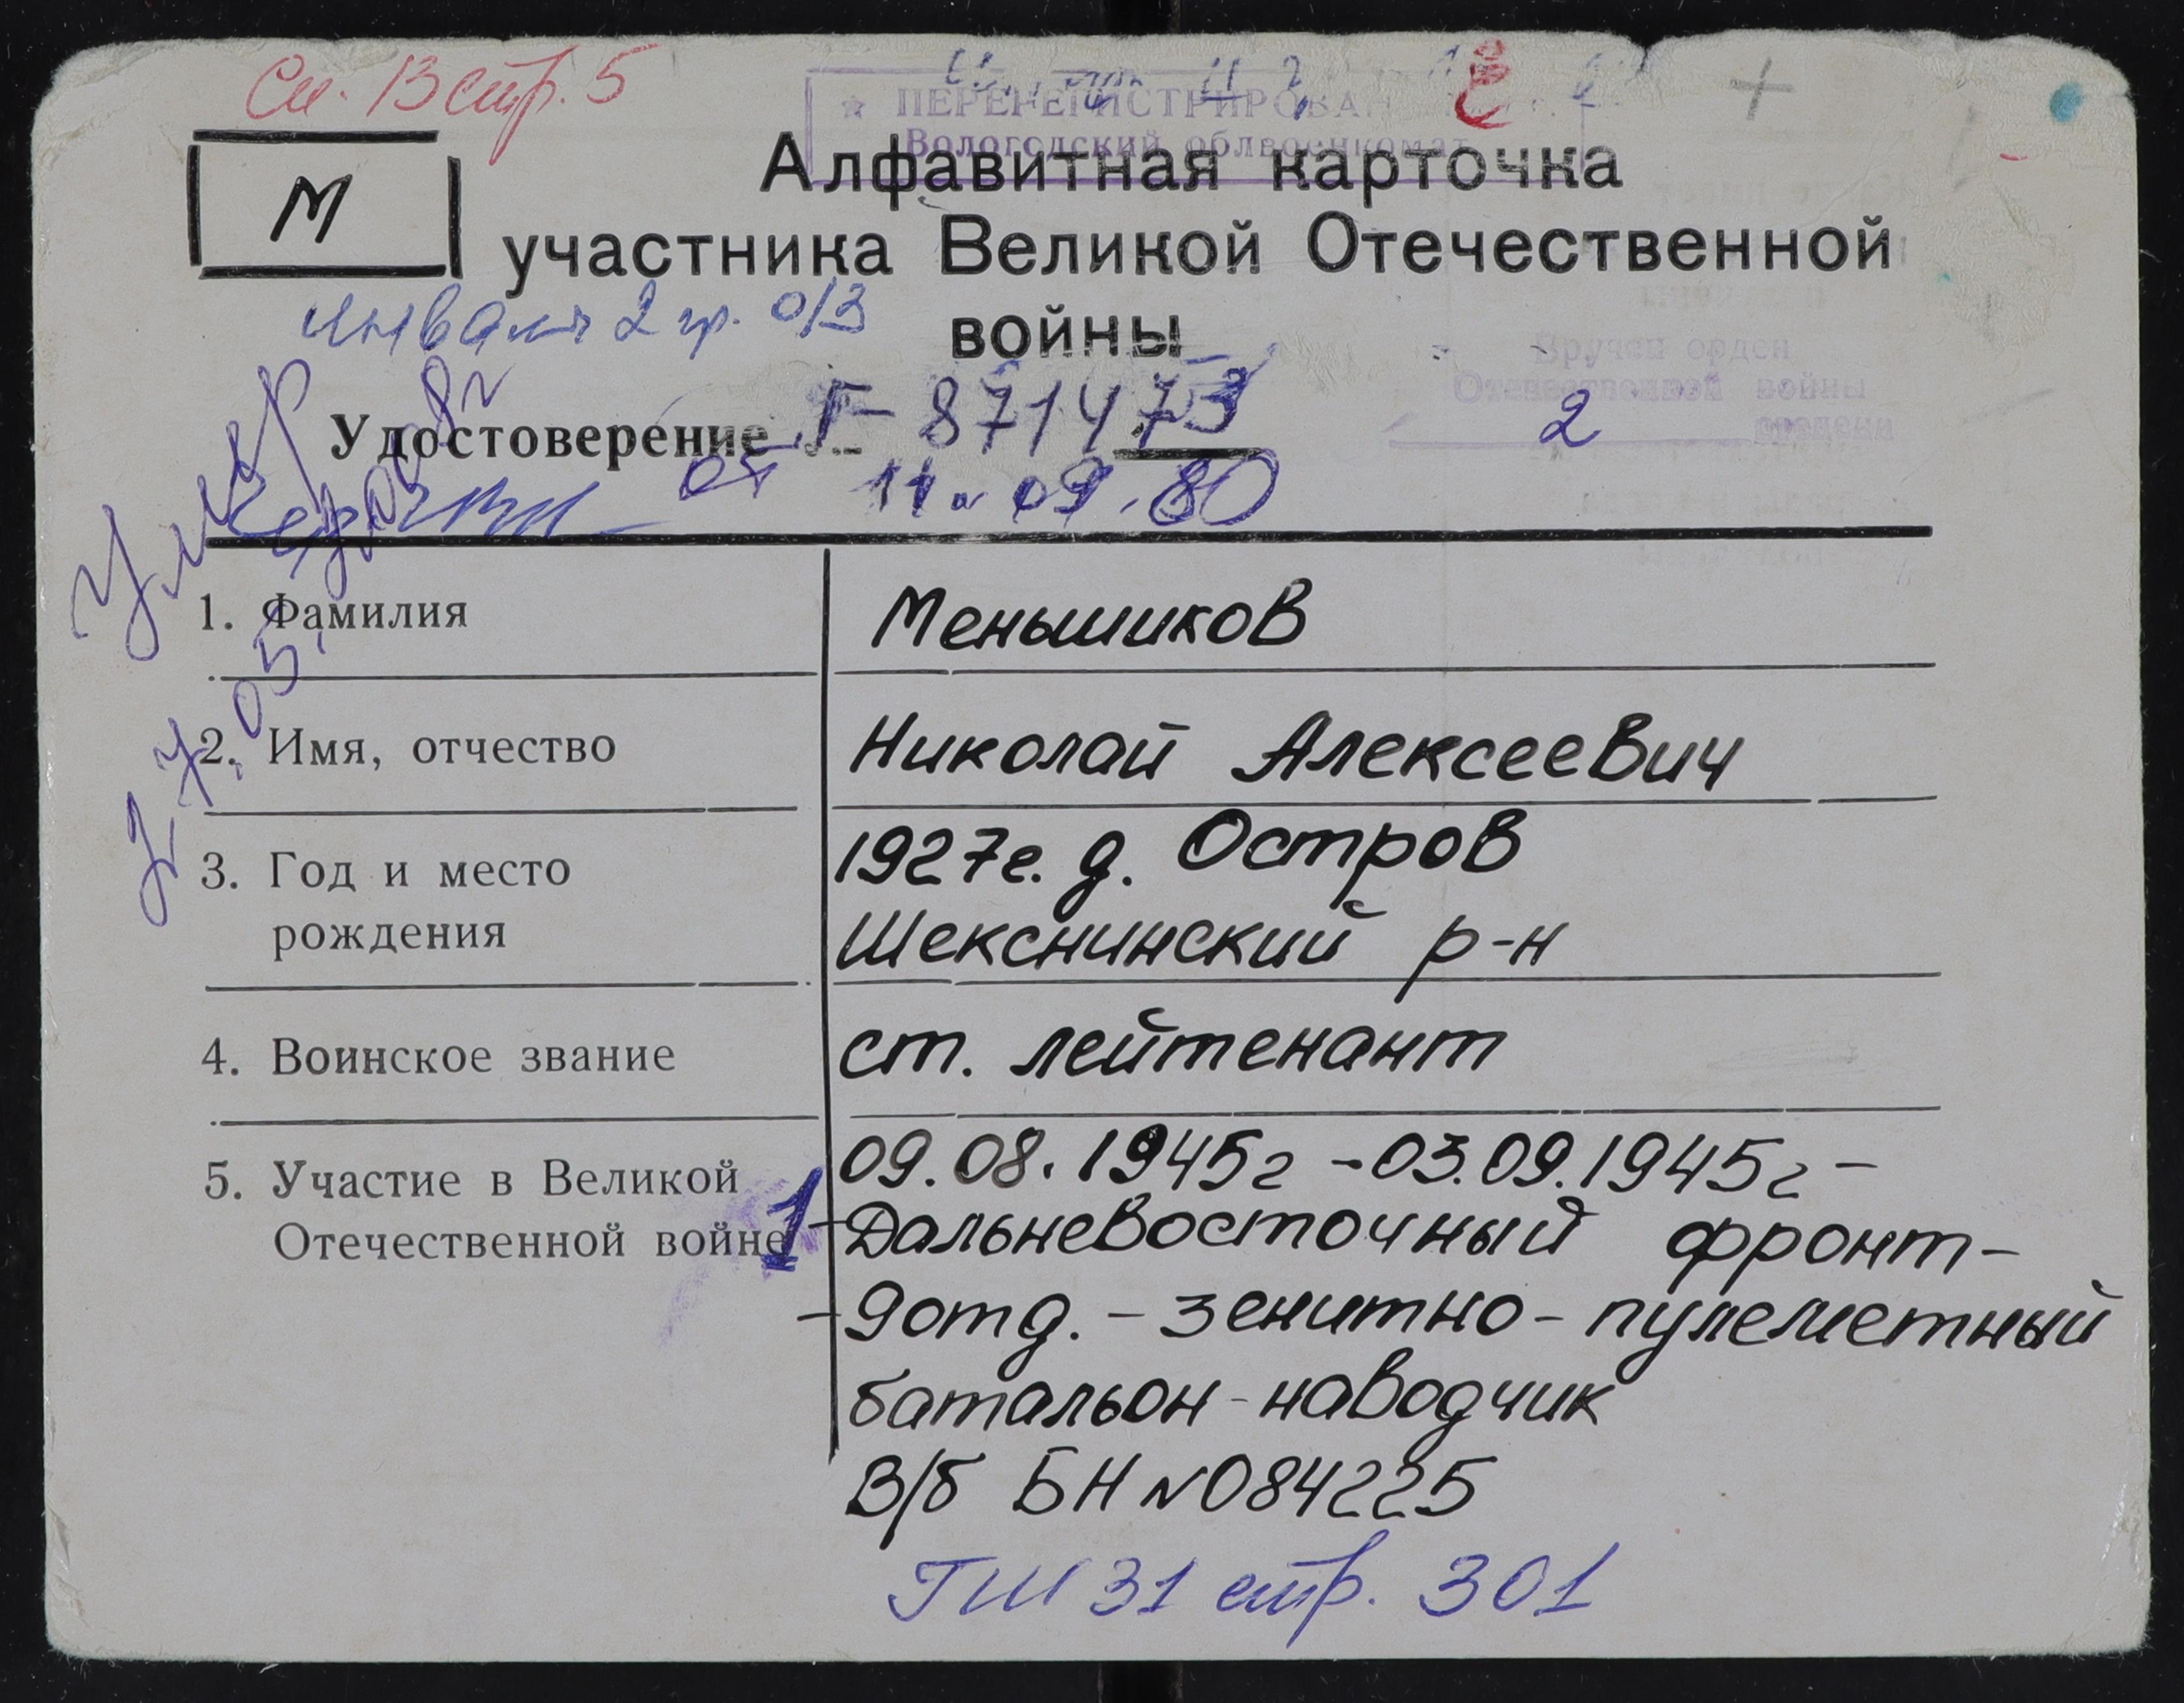 См. 13 стр. 5
☆ ПЕРЕРЕГИСТРИРОВАН
Вологодский облвоенкомат
М
Алфавитная карточка
участника Великой Отечественной
войны
инвалид 2 гр. о/з
Вручен орден
Отечественной войны
2 степени
Удостоверение Г- 871473
от 11.09.80
Умер
27.05.
1. Фамилия
Меньшиков
2. Имя, отчество
Николай Алексеевич
3. Год и место
рождения
1927г. д. Остров
Шекснинский р-н
4. Воинское звание
ст. лейтенант
5. Участие в Великой
Отечественной войне
1
09.08.1945г -03.09.1945г -
-Дальневосточный фронт-
-9отд.-зенитно-пулеметный
батальон-наводчик
В/б БН №084225
ГШ 31 стр. 301